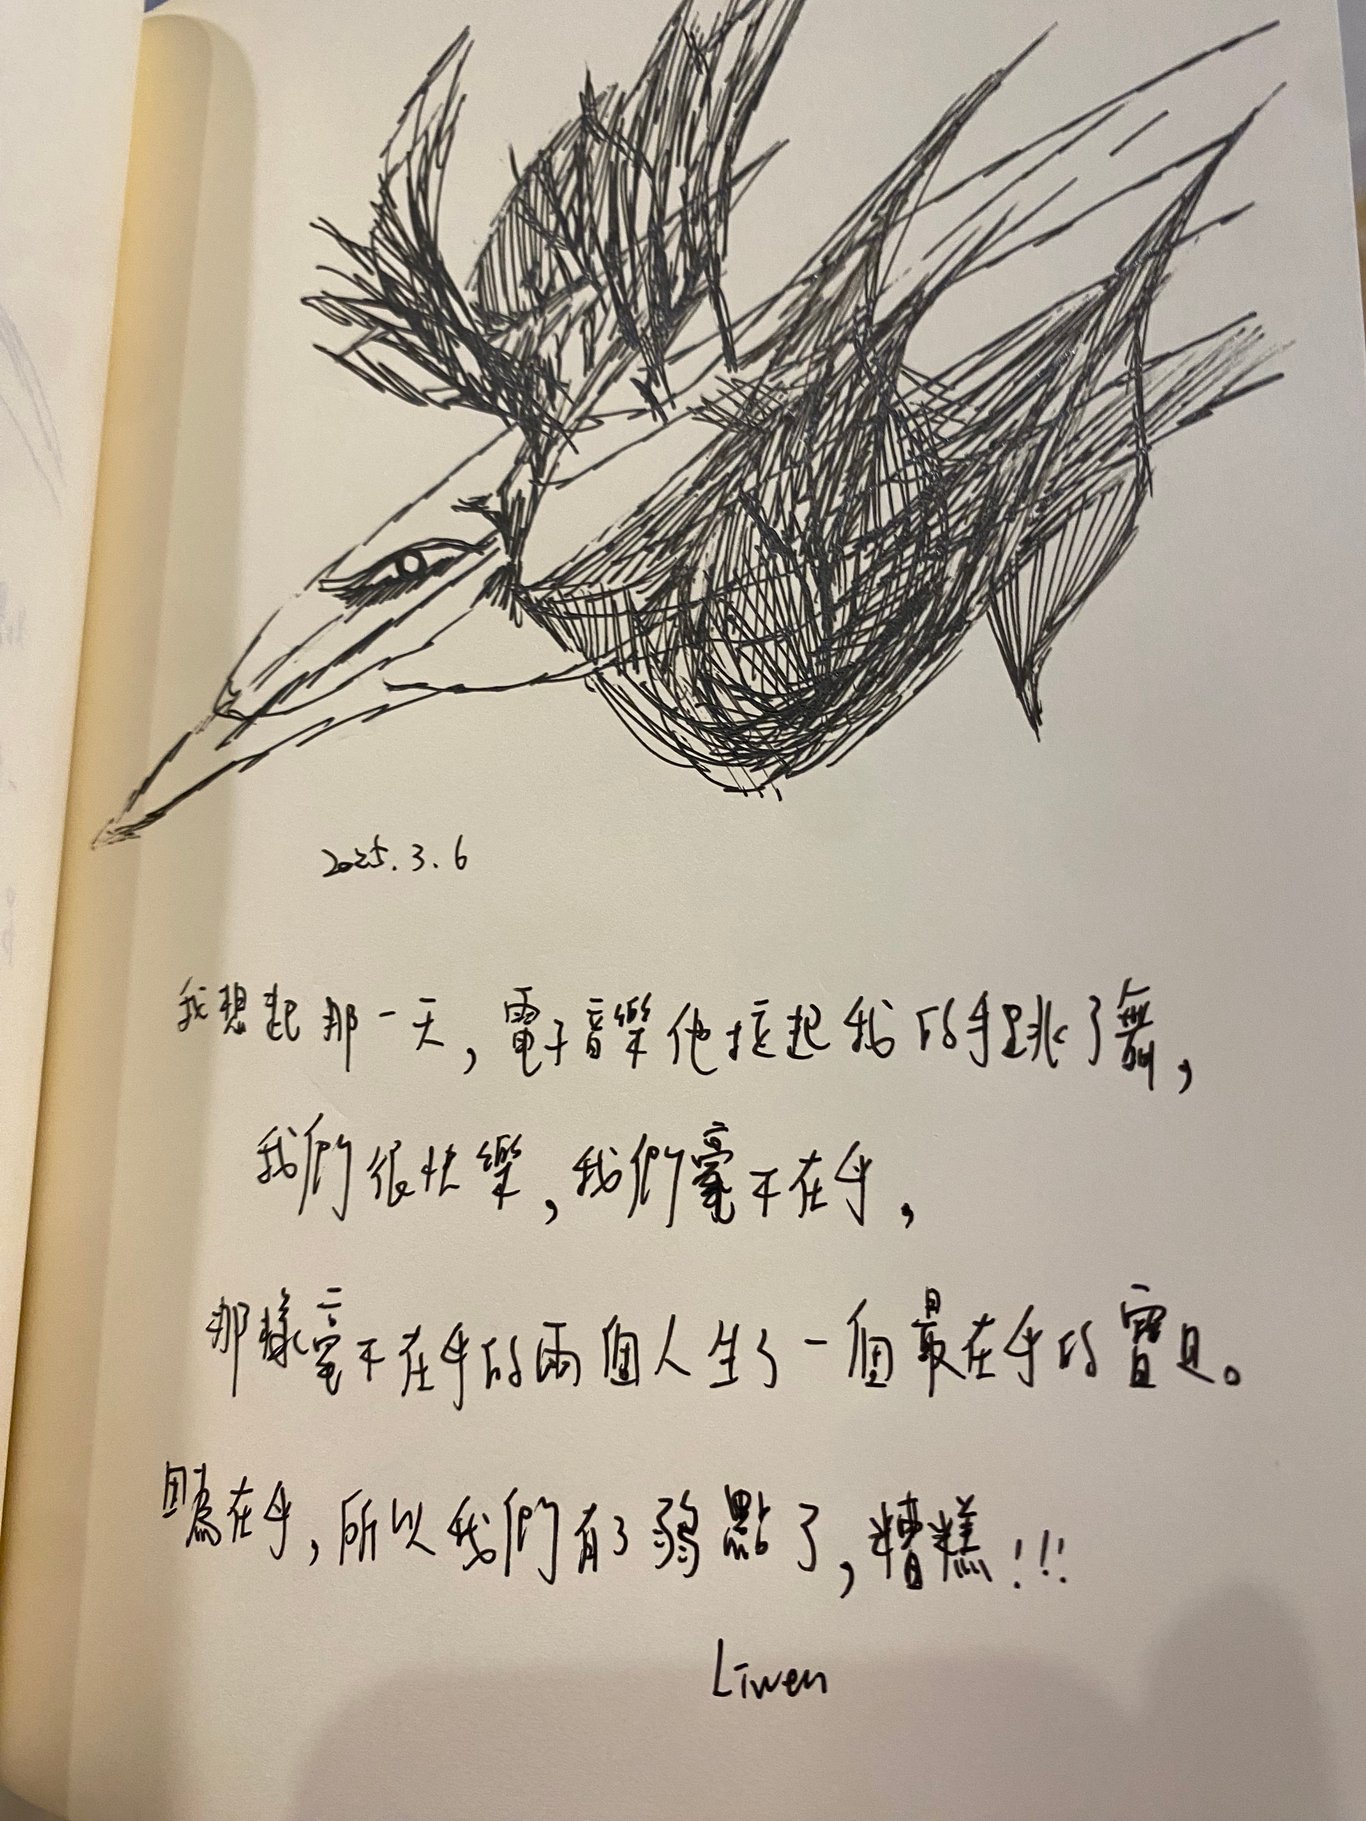 2025.3.6
我想起那一天,電子音樂他拉起我的手跳了舞,
我們很快樂,我們毫不在乎,
那樣毫不在乎的兩個人生了一個最在乎的寶貝。
因為在乎,所以我們有了弱點了,糟糕!!!
Liwen